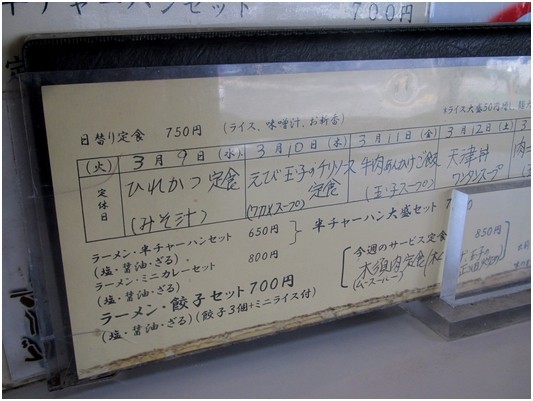 半チャーハンセット 700円
日替り定食 750円 (ライス、味噌汁、お新香)
*ライス大盛50円増
(火) 3月9日 (水) 3月10日 (木) 3月11日 (金) 3月12日 (土) 3
定休日
ひれかつ定食
(みそ汁)
えび玉子のチリソース
定食
(ワカメスープ)
牛肉あんかけご飯
(玉子スープ)
天津丼
ワンタンスープ
肉
ラーメン・半チャーハンセット 650円
(塩・醤油・ざる)
半チャーハン大盛セット 7
ラーメン・ミニカレーセット 800円
(塩・醤油・ざる)
今週のサービス定食 850円
木須肉定食
(ムースールー)
ラーメン・餃子セット700円
(塩・醤油・ざる)(餃子3個+ミニライス付)